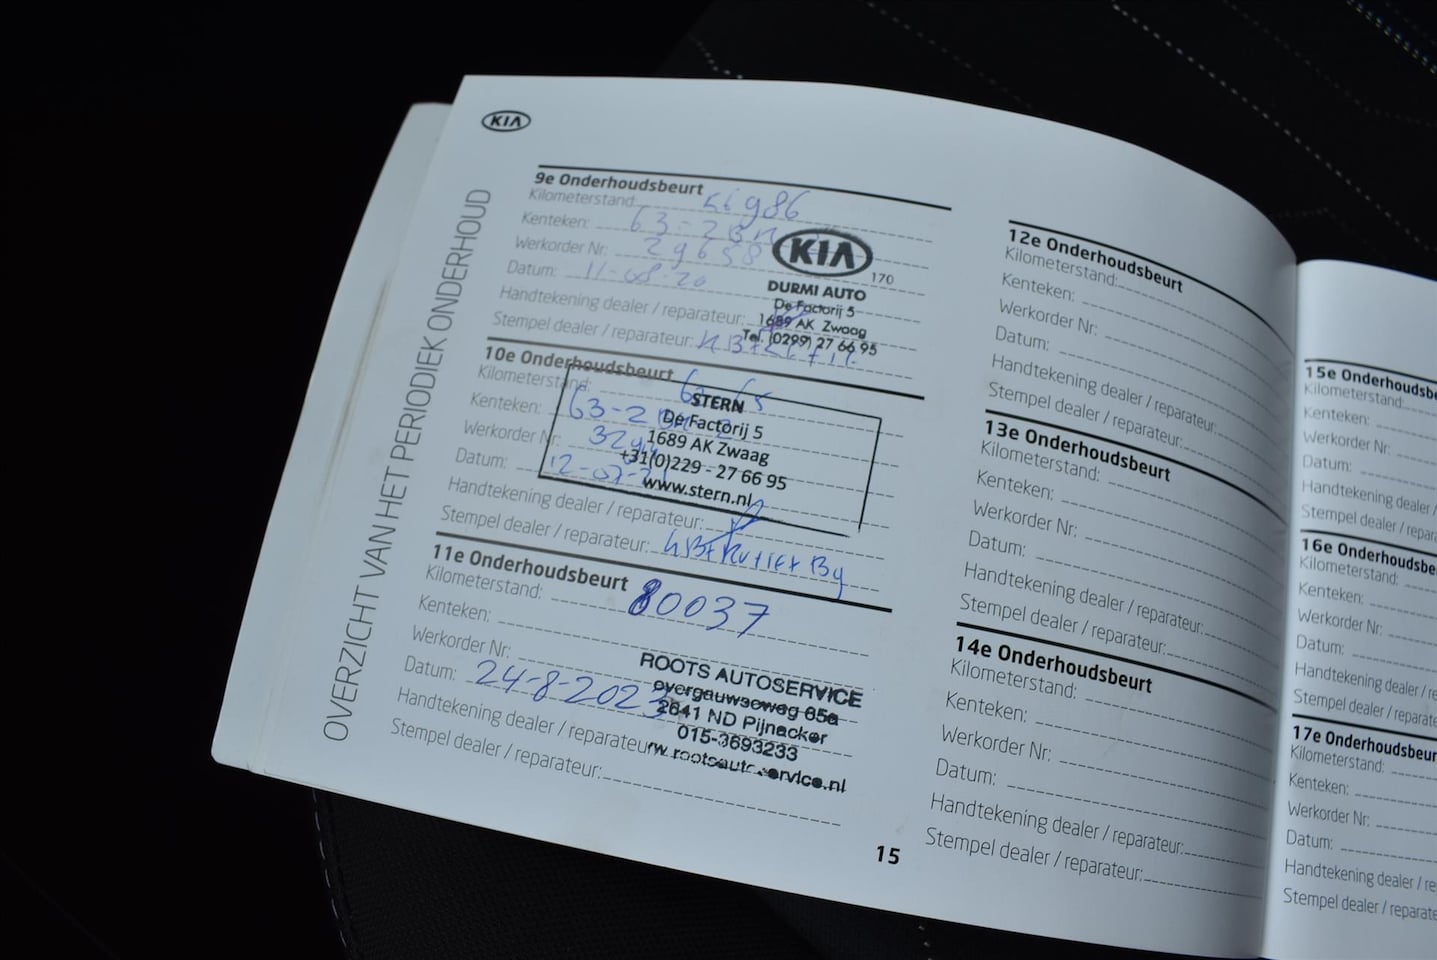 KIA
OVERZICHT VAN HET PERIODIEK ONDERHOUD
9e Onderhoudsbeurt
Kilometerstand: 56986
Kenteken: 63-2BN
Werkorder Nr: 29658
Datum: 11-08-20
Handtekening dealer / reparateur:
Stempel dealer / reparateur:
KIA
170
DURMI AUTO
De Factorij 5
1689 AK Zwaag
Tel. (0299) 27 66 95
10e Onderhoudsbeurt
Kilometerstand:
Kenteken: 63-2
Werkorder Nr:
Datum: 12-07-21
Handtekening dealer / reparateur:
Stempel dealer / reparateur:
STERN
De Factorij 5
1689 AK Zwaag
+31(0)229 - 27 66 95
www.stern.nl
11e Onderhoudsbeurt
Kilometerstand: 80037
Kenteken:
Werkorder Nr:
Datum: 24-8-2023
Handtekening dealer / reparateur:
Stempel dealer / reparateur:
ROOTS AUTOSERVICE
overgauwseweg 65a
2641 ND Pijnacker
015-3693233
w.rootsautoservice.nl
15
12e Onderhoudsbeurt
Kilometerstand:
Kenteken:
Werkorder Nr:
Datum:
Handtekening dealer / reparateur:
Stempel dealer / reparateur:
13e Onderhoudsbeurt
Kilometerstand:
Kenteken:
Werkorder Nr:
Datum:
Handtekening dealer / reparateur:
Stempel dealer / reparateur:
14e Onderhoudsbeurt
Kilometerstand:
Kenteken:
Werkorder Nr:
Datum:
Handtekening dealer / reparateur:
Stempel dealer / reparateur:
15e Onderhoudsb
Kilometerstand:
Kenteken:
Werkorder Nr:
Datum:
Handtekening dealer /
Stempel dealer / repar
16e Onderhoudsbe
Kilometerstand:
Kenteken:
Werkorder Nr:
Datum:
Handtekening dealer /
Stempel dealer / reparate
17e Onderhoudsbeur
Kilometerstand:
Kenteken:
Werkorder Nr:
Datum:
Handtekening dealer / re
Stempel dealer / reparate